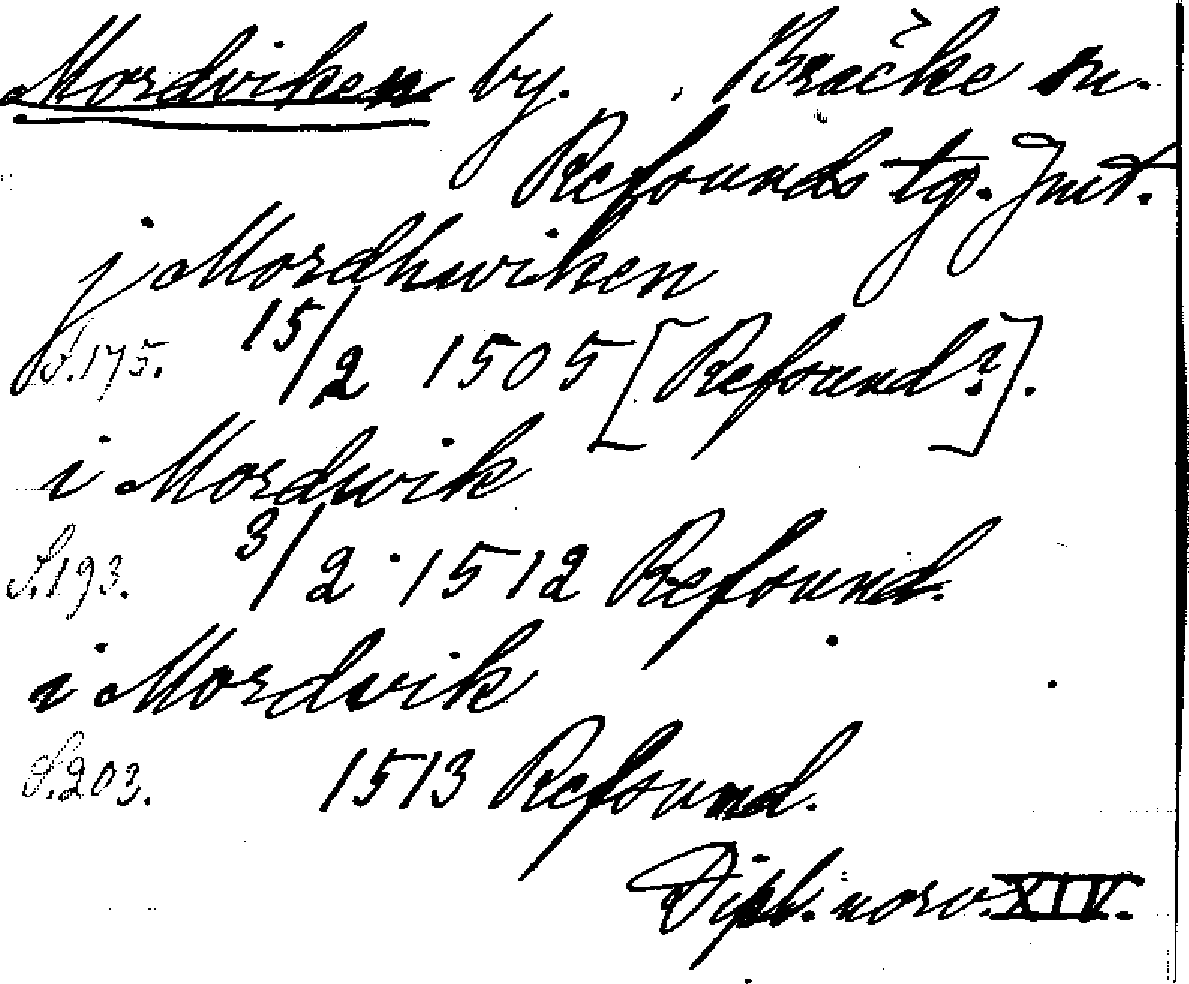 Mordviken by. Bräcke sn.
Refsunds tg. Jmt.
j Mordhwiken
S. 175. 15/2 1505 [Refsund?].
i Mordwik
S. 193. 3/2 1512 Refsund.
i Mordwik
S. 203. 1513 Refsund.
Dipl. norv. XIV.